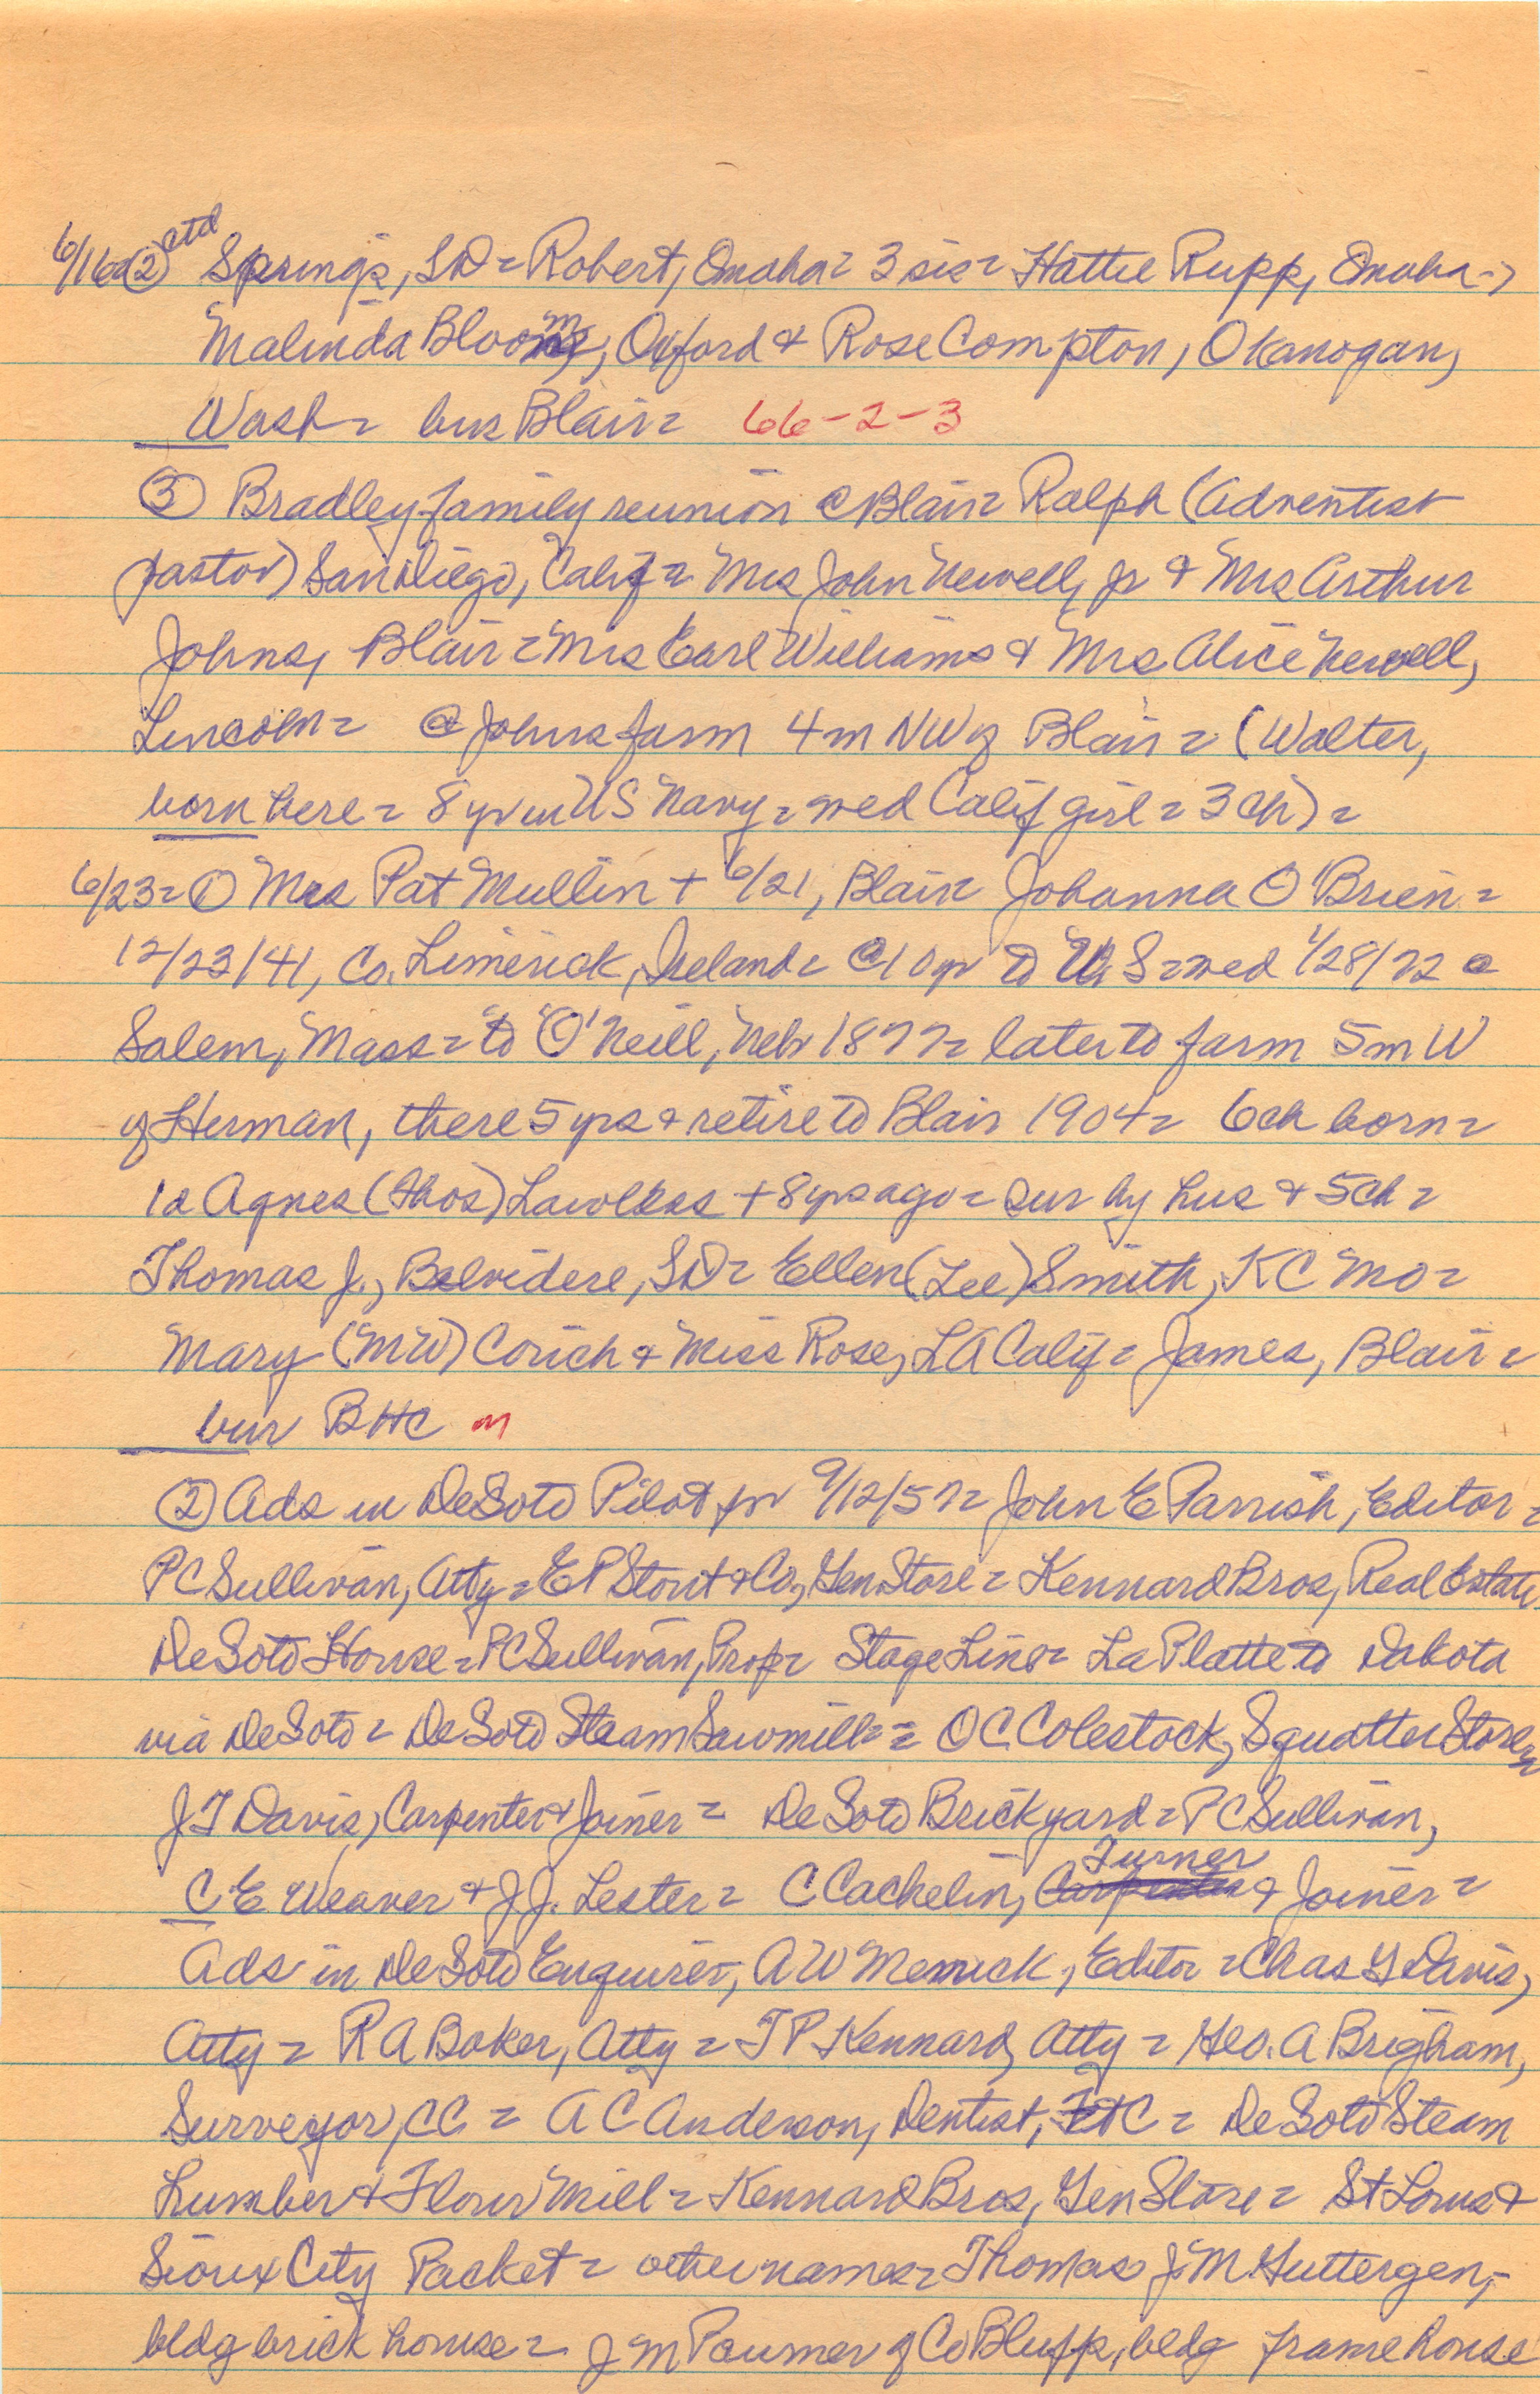 6/16= ② ctd Springs, SD = Robert, Omaha = 3 sis = Hattie Rupp, Omaha =
Malinda Bloom, Oxford & Rose Compton, Okanogan,
Wash = bur Blair = 66-2-3
③ Bradley family reunion @ Blair = Ralph (Adventist
pastor) San Diego, Calif = Mrs John Newell, jr & Mrs Arthur
Johns, Blair = Mrs Earl Williams & Mrs Alice Newell,
Lincoln = @ Johns farm 4m NW of Blair = (Walter,
born here = 8 yr in US Navy = wed Calif girl = 3 ch) =
6/23 = ① Mrs Pat Mullin + 6/21, Blair = Johanna O'Brien =
12/23/41, Co. Limerick, Ireland = @ 10 yr to US = wed 1/28/72 @
Salem, Mass = to O'Neill, Neb 1877 = later to farm 5m W
of Herman, there 5 yrs & retire to Blair 1904 = 6 ch born =
1d Agnes (Thos) + 8 yrs ago = sur by hus & 5 ch =
Thomas J., Belvidere, SD = Ellen (Lee) Smith, KC Mo =
Mary (MW) Corich & Miss Rose, LA Calif = James, Blair =
bur BHC m
② Ads in DeSoto Pilot fr 9/12/57 = John E Parrish, Editor =
PC Sullivan, Atty = EP Stout & Co, Gen Store = Kennard Bros, Real Estate =
DeSoto House = PC Sullivan, Prop = Stage Line = La Platte to Dakota
via DeSoto = DeSoto Steam Sawmill = OC Colestock, Squatter Store =
JT Davis, Carpenter & Joiner = DeSoto Brickyard = PC Sullivan,
CE Weaver & J.J. Lester = C Cachelin, Carpenter Turner & Joiner =
Ads in DeSoto Enquirer, AW Merrick, Editor = Chas Davis,
Atty = RA Baker, Atty = TP Kennard, Atty = Geo. A Brigham,
Surveyor, CC = AC Anderson, Dentist, Etc = DeSoto Steam
Lumber & Flour Mill = Kennard Bros, Gen Store = St Louis &
Sioux City Packet = other names = Thomas J. M. Guttergen,
bldg brick house = JM Paumer of Co Bluffs, bldg frame house